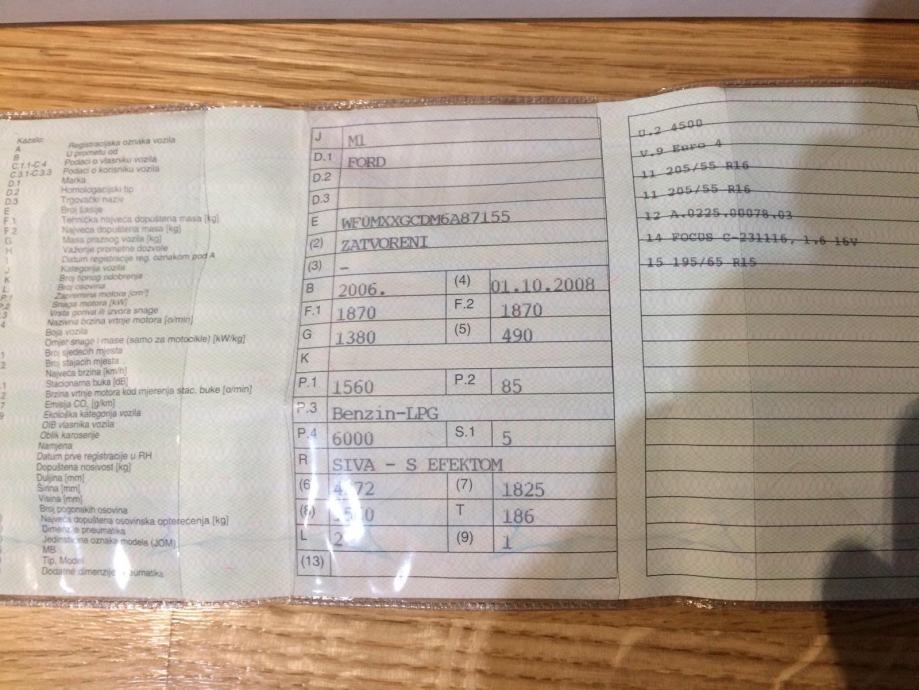 Kazalo:
A Registracijska oznaka vozila
B U prometu od
C.1.1-C.4 Podaci o vlasniku vozila
C.3.1-C.3.3 Podaci o korisniku vozila
D.1 Marka
D.2 Homologacijski tip
D.3 Trgovački naziv
E Broj šasije
F.1 Tehnička najveća dopuštena masa [kg]
F.2 Najveća dopuštena masa [kg]
G Masa praznog vozila [kg]
H Važenje prometne dozvole
I Datum registracije reg. oznakom pod A
J Kategorija vozila
K Broj tipnog odobrenja
L Broj osovina
P.1 Zapremina motora [cm³]
P.2 Snaga motora [kW]
.3 Vrsta goriva ili izvora snage
4 Nazivna brzina vrtnje motora [o/min]
Boja vozila
Omjer snage i mase (samo za motocikle) [kW/kg]
1 Broj sjedećih mjesta
2 Broj stajaćih mjesta
Najveća brzina [km/h]
.1 Stacionarna buka [dB]
.2 Brzina vrtnje motora kod mjerenja stac. buke [o/min]
7 Emisija CO₂ [g/km]
9 Ekološka kategorija vozila
OIB vlasnika vozila
Oblik karoserije
Namjena
Datum prve registracije u RH
Dopuštena nosivost [kg]
Duljina [mm]
Širina [mm]
Visina [mm]
Broj pogonskih osovina
Najveća dopuštena osovinska opterećenja [kg]
pneumatika
Jedinstvena oznaka modela (JOM)
MB
Tip, Model
Dodatne dimenzije pneumatika
J M1
D.1 FORD
D.2
D.3
E WF0MXXGCDM6A87155
(2) ZATVORENI
(3) –
B 2006. (4) 01.10.2008
F.1 1870 F.2 1870
G 1380 (5) 490
K
P.1 1560 P.2 85
P.3 Benzin-LPG
P.4 6000 S.1 5
R SIVA - S EFEKTOM
(6 72 (7) 1825
(8) T 186
L 2 (9) 1
(13)
U.2 4500
V.9 Euro 4
11 205/55 R16
11 205/55 R16
12 A.0225.00078.03
14 FOCUS C-231116, 1,6 16V
15 195/65 R15